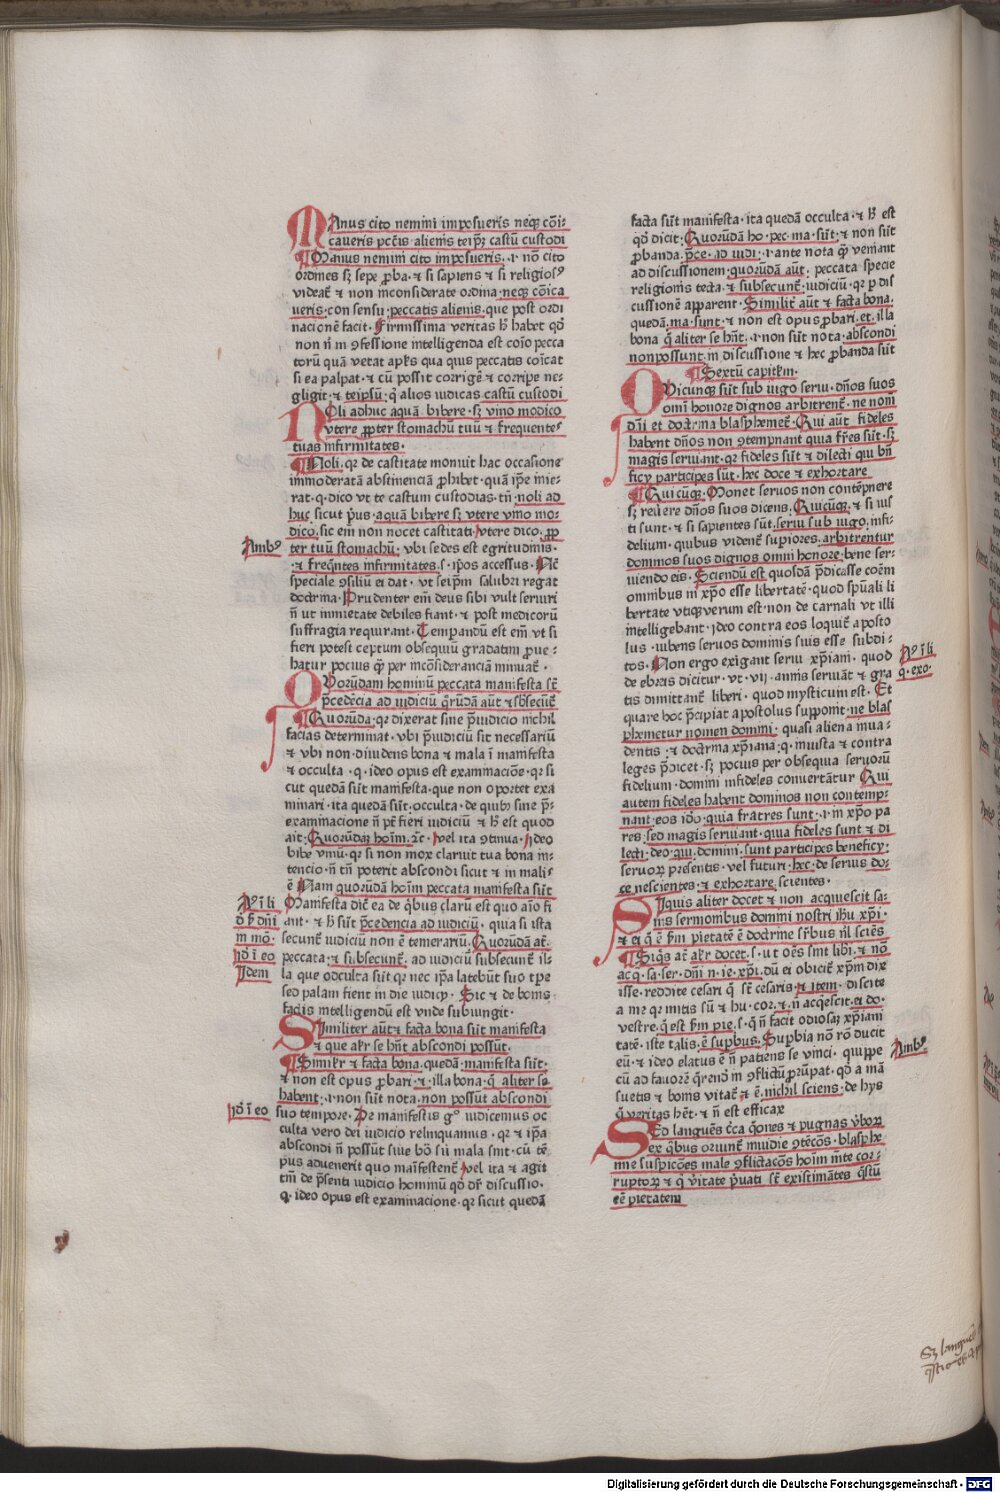 Manus cito nemini imposueris neqꝫ cōi-
caueris pctīs alienis teipꝫ castū custodi
Manus nemini cito imposueris. .i. nō cito
ordines sꝫ sepe ꝓba. ⁊ si sapiens ⁊ si religiosꝰ
videat̄ ⁊ non inconsiderate ordina. neqꝫ cōica
ueris. con sensu. peccatis alienis. que post ordi
nacionē facit. Firmissima veritas hꝫ habet qđ
non n̄ in ꝯfessione intelligenda est coīo pecca
torū quā vetat apl̄s qua quis peccatis coīcat
si ea palpat. ⁊ cū possit corrigē ⁊ corripe ne-
gligit. ⁊ teipsū. q̄ alios iudicas castū custodi
Noli adhuc aquā bibere. sꝫ vino modico
vtere ꝓpter stomachū tuū ⁊ frequentes
tuas infirmitates.
Noli. qꝛ de castitate monuit hac occasione
immoderatā abstinenciā ꝓhibet. quā ip̄e mie-
rat. q. dico vt te castum custodias. tn̄. noli ad
huc sicut pͥus. aquā bibere sꝫ vtere vino mo-
dico. sic em̄ non nocet castitati. vtere dico. ꝓp
Ambꝰ
ter tuū stomachū. vbi sedes est egritudinis.
⁊ freqn̄tes infirmitates. s. ip̄os accessus.
speciale ꝯsiliū ei dat. vt seip̄m salubri regat
doctrina. Prudenter em̄ deus sibi vult seruiri
n̄ vt inmietate debiles fiant. ⁊ post medicorū
suffragia requirant. Temꝑandū est em̄ vt si
fieri potest ceptum obsequiū gradatim ꝓue-
hatur pocius qͣ̄ per incōsideranciā minuat̄.
Quorūdam hominū peccata manifesta st̄
p̄cedēcia ad iudiciū qͦrūdā aūt ⁊ sb̄secūt̄
Quorūdā. qꝛ dixerat sine p̄iudicio nichil
facias determinat. vbi p̄iudiciū sit necessariū
⁊ vbi non. diuidens bona ⁊ mala ī manifesta
⁊ occulta. q. ideo opus est examinacōe. qꝛ si
cut quedā sūt manifesta. que non oportet exa
minari. ita quedā sūt. occulta. de quibꝰ sine p̄-
examinacione n̄ pt̄ fieri iudiciū ⁊ hꝫ est quod
ait. Quorūdaꝫ hoīm. ⁊c̄. vel ita ꝯtinua. ideo
bibe vinū. qꝛ si non mox claruit tua bona in-
tencio. n̄ tn̄ poterit abscondi sicut ⁊ in mali-
ē Nam quorūdā hoīm peccata manifesta sūt
Manifesta dic̄ ea de qͥbus clarū est quo aīo fi
ant. ⁊ hꝫ sūt p̄cedencia ad iudiciū. quia si ista
secunt̄ iudiciū non ē temerariū. Quorūdā at̄.
peccata. ⁊ subsecunt̄. ad iudiciū subsecunt̄ il-
la que occulta sūt qꝛ nec ip̄a latebūt suo tp̄e
sed palam fient in die iudicij. Sic ⁊ de bonis
factis intelligendū est vnde subiungit.
Similiter aūt ⁊ facta bona sūt manifesta
⁊ que alr̄ se hn̄t abscondi possūt.
Similr̄ ⁊ facta bona. quedā. manifesta sūt.
⁊ non est opus ꝓbari. ⁊. illa bona. q̄ aliter se
habent. .i. non sūt nota. non possūt abscondi
suo tempore. De manifestis gͦ. iudicemus oc
culta vero dei iudicio relinquamus. qꝛ ⁊ ip̄a
abscondi n̄ possūt siue bōa siū mala sint. cū tē-
pus aduenerit quo māifestent̄ vel ita ⁊ agit
tm̄ de p̄senti iudicio hominū qđ dr̄ discussio.
q. ideo opus est examinacione. qꝛ sicut quedā
facta sūt manifesta. ita quedā occulta. ⁊ hꝫ est
qđ dicit. Quorūdā ho. pec. ma. sūt. ⁊ non sūt
ꝓbanda. p̄ce. ad iudi. .i. ante nota qͣ̄ veniant
ad discussionem. quorūdā aūt. peccata specie
religionis tecta. ⁊ subsecunt̄. iudiciū. qꝛ ꝑ dis
cussionē apparent. Similit̄ aūt ⁊ facta bona.
quedā. ma. sunt. ⁊ non est opus ꝓbari. et. illa
bona q̄ aliter se hn̄t. .i. non sūt nota. abscondi
non possunt. in discussione ⁊ hec ꝓbanda sūt
Sextū capitl̄m.
Quicunqꝫ sūt sub iugo serui. dn̄os suos
omī honore dignos arbitrent̄. ne nomē
dn̄i et doctrina blasphemet̄. Qui aūt fideles
habent dn̄os non ꝯtempnant quia fr̄es sūt. sꝫ
magis seruiant. qꝛ fideles sūt ⁊ dilecti qui bn̄
ficij participes sūt. hec doce ⁊ exhortare
Quicūqꝫ. Monet seruos non contēpnere
sꝫ reuere dn̄os suos dicens. Quicūqꝫ. ⁊ si ius
ti sunt. ⁊ si sapientes sūt. serui sub iugo. infi-
delium. quibus vident̄ suꝑiores. arbitrentur
dominos suos dignos omni honore. bene ser-
uiendo eis. Sciendū est quosdā p̄dicasse coēm
omnibus in xp̄o esse libertatē. quod spūali li
bertate vtiqꝫ verum est. non de carnali vt illi
intelligebant. ideo contra eos loquit̄ aposto
lus. iubens seruos dominis suis esse subdi-
tos. Non ergo exigant serui xp̄iani. quod
de ebreis dicitur. vt. vij. annis seruāt ⁊ gra
tis dimittant̄ liberi. quod mysticum est. Et
quare hoc p̄cipiat apostolus supponit. ne blas
phemetur nomen domini. quasi aliena inua-
dentis. ⁊ doctrina xp̄iana. q. iniusta ⁊ contra
leges p̄dicet. sꝫ pocius per obsequia seruorū
fidelium. domini infideles conuertātur Qui
autem fideles habent dominos non contemp-
nant. eos ido. quia fratres sunt. .i. in xp̄o pa
res. sed magis seruiant. quia fideles sunt ⁊ di
lecti. deo. qui. domini. sunt participes beneficij.
seruoꝝ presentis. vel futuri. hec. de seruis do-
ce nescientes. ⁊ exhortare. scientes.
Siquis aliter docet ⁊ non acquiescit sa-
nis sermonibus domini nostri ihū xp̄i.
⁊ ei q̄ ē ẜm pietatē ē doctrine sr̄bus nl̄ sciēs
Siqͥs at̄ alr̄ docet. s. vt oēs sint libi. ⁊ nō
acq. sa. ser. dn̄i n. ie. xp̄i. dū ei obicit̄ xp̄m dix
isse. reddite cesari q̄ st̄ cesaris. ⁊ item. discite
a me qꝛ mitis sū ⁊ hu. cor. ⁊. n̄ acqͥescit. ei do.
vestre. q̄ est ẜm pie. s. q̄ n̄ facit odiosaꝫ xp̄iani
tatē. iste talis. ē suꝑbus. Suꝑbia nō rō ducit
eū. ⁊ ideo elatus ē n̄ patiens se vinci. quippe
cū ad fauorē q̄rend̄ in ꝯflictū ꝓrūpat. qđ a mā
suetis ⁊ bonis vitat̄ ⁊ ē. nichil sciens. de hys
q̄ veritas hēt. ⁊ n̄ est efficax
Sed languēs c̄ca q̄ones ⁊ pugnas v̄boꝝ
ex qͥbus oriunt̄ inuidie ꝯtēcōs. blasphe
mie suspicōes male ꝯflictacōs hoīm mēte cor-
ruptoꝝ ⁊ q̄ v̄itate pͥuati st̄ existimātes qͣstū
eē pietatem
Aꝰ ī li
Idem
ido ī eo
Aꝰ ī li
q. exo.
Ambꝰ
Digitalisierung gefördert durch die Deutsche Forschungsgemeinschaft - DFG